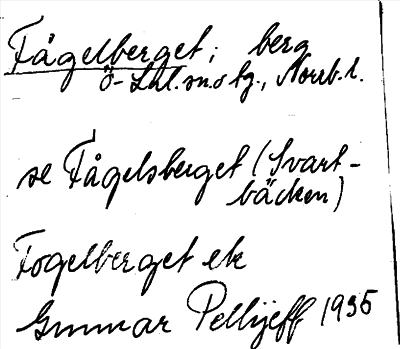 Fågelberget; berg
Ö-Lul. sn. o tg., Norrb. l.
se Fågelsberget (Svart-
bäcken)
Fogelberget ek
Gunnar Pellijeff 1935